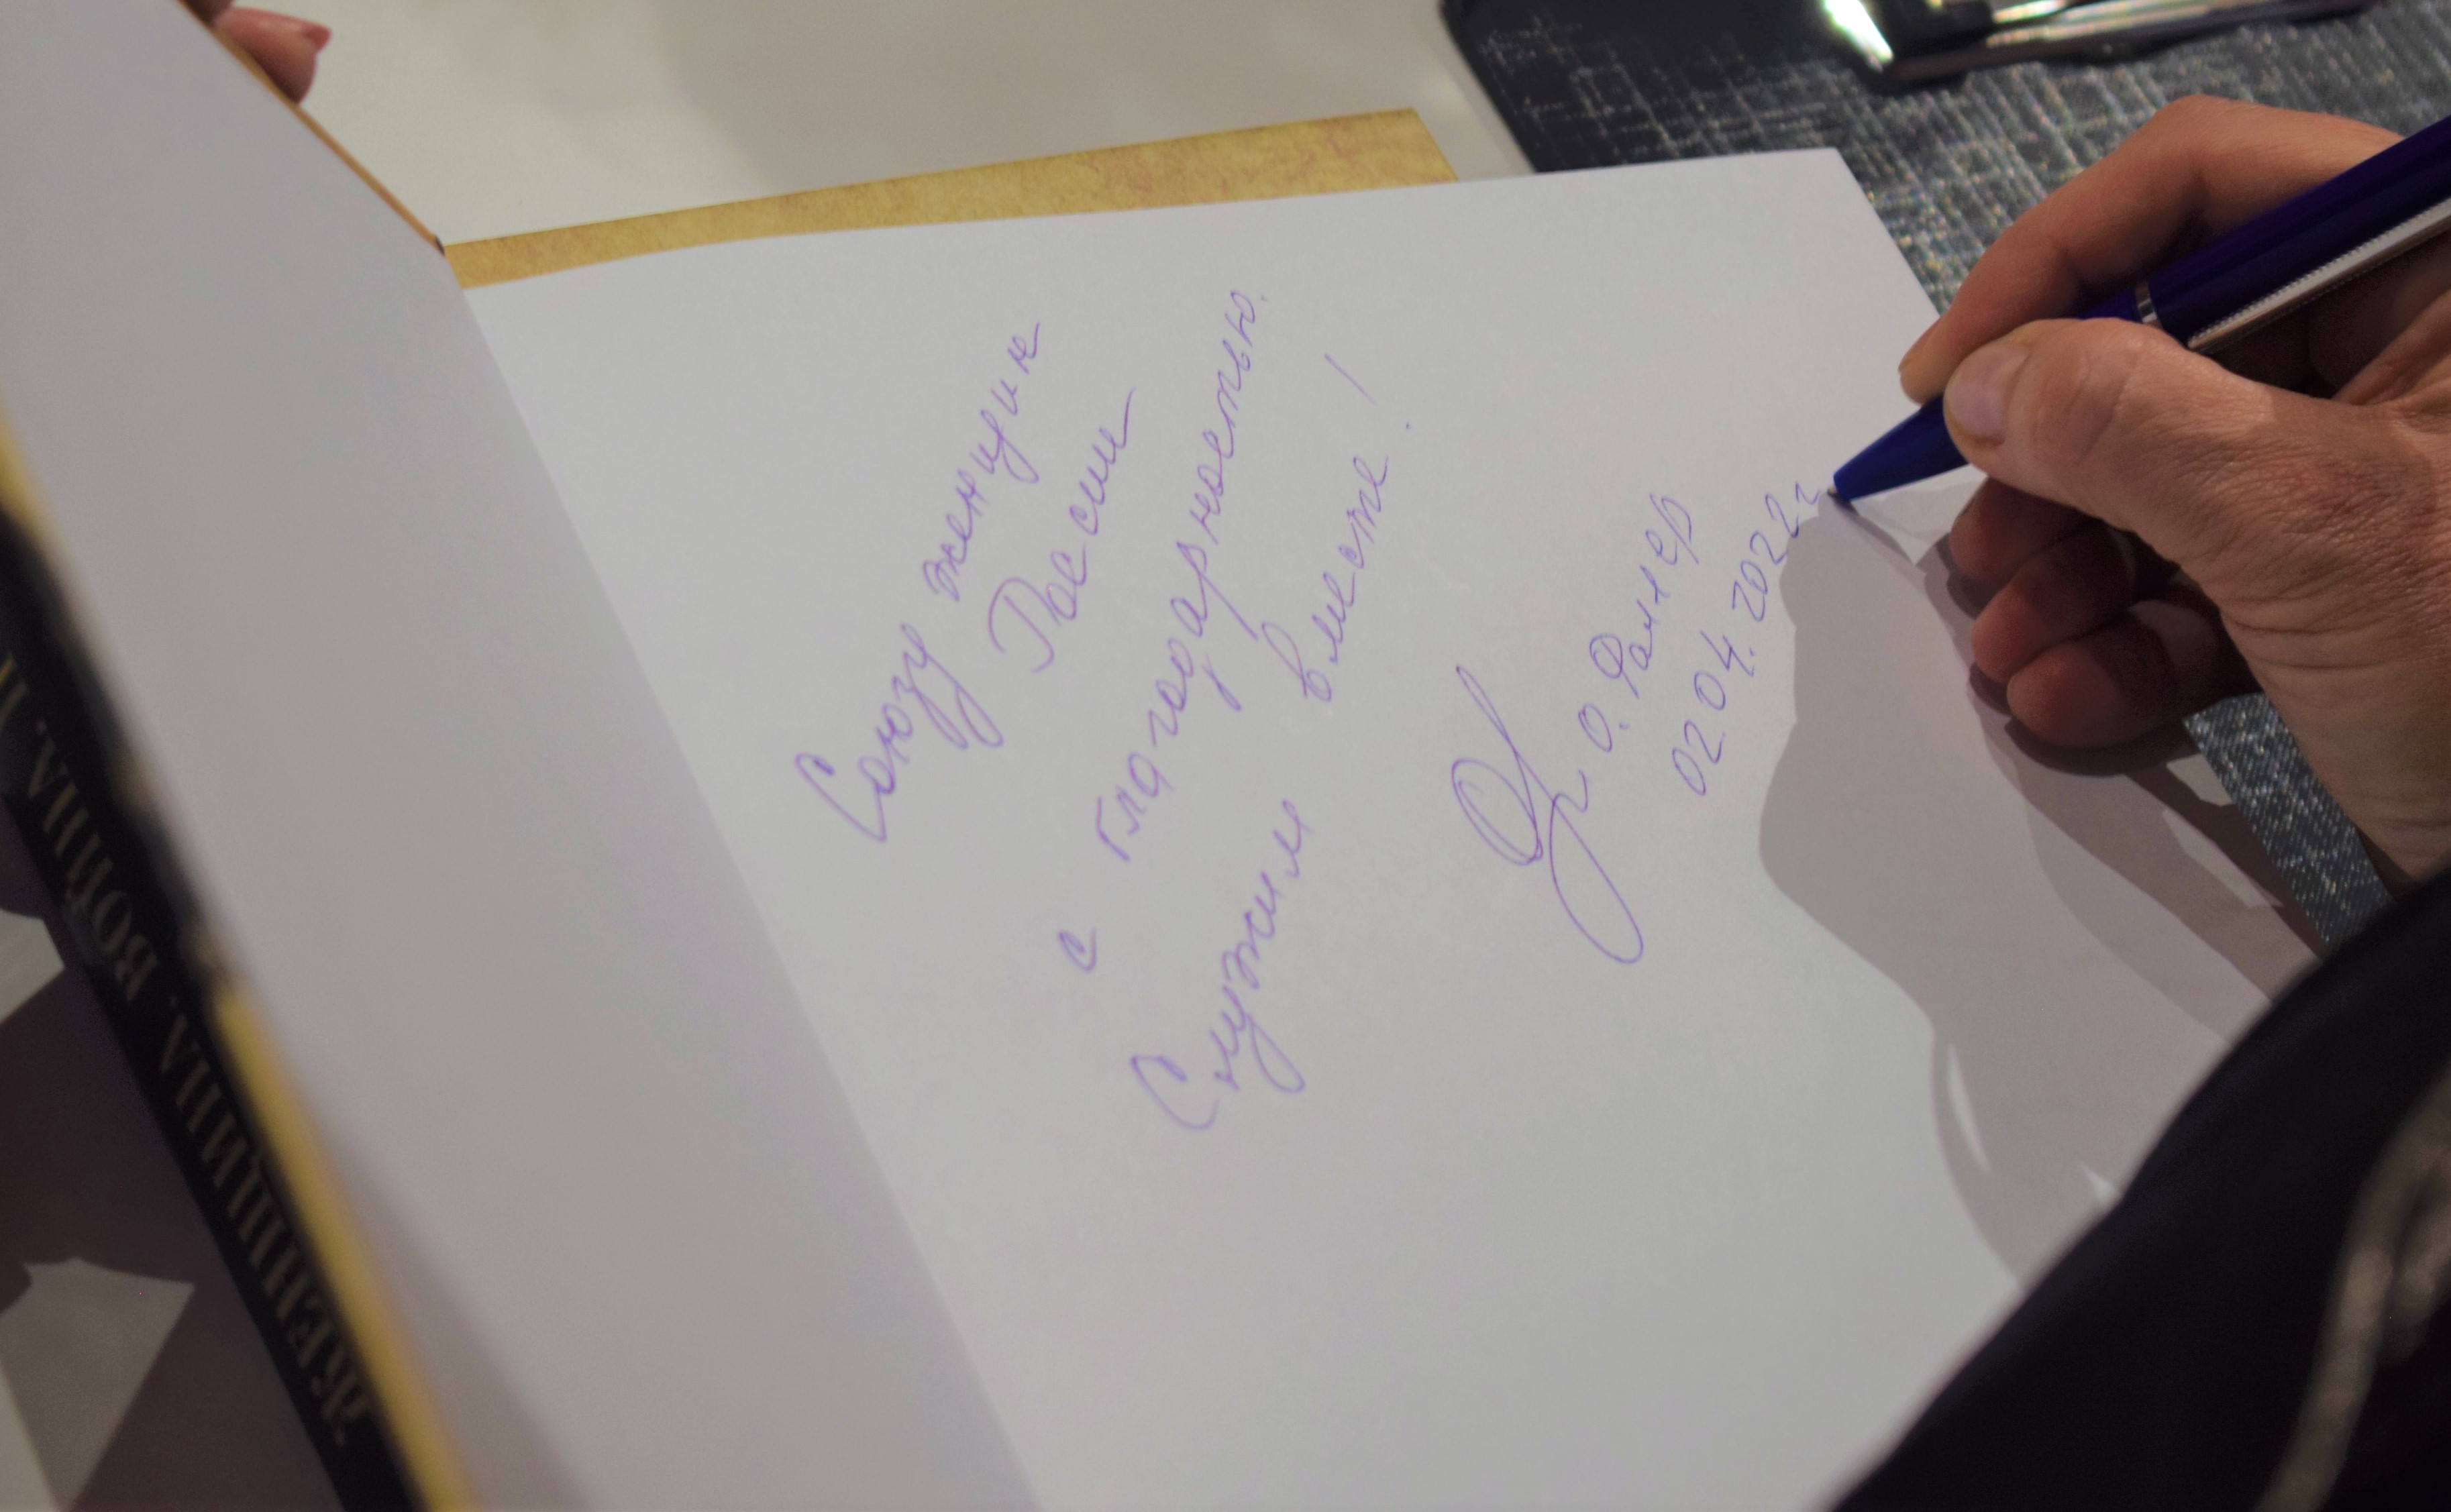 Союзу женщин
России
с благодарностью.
Служим вместе!
О. Фаллер
02.04.2022г
ЖЕНЩИНА. ВОЙНА.